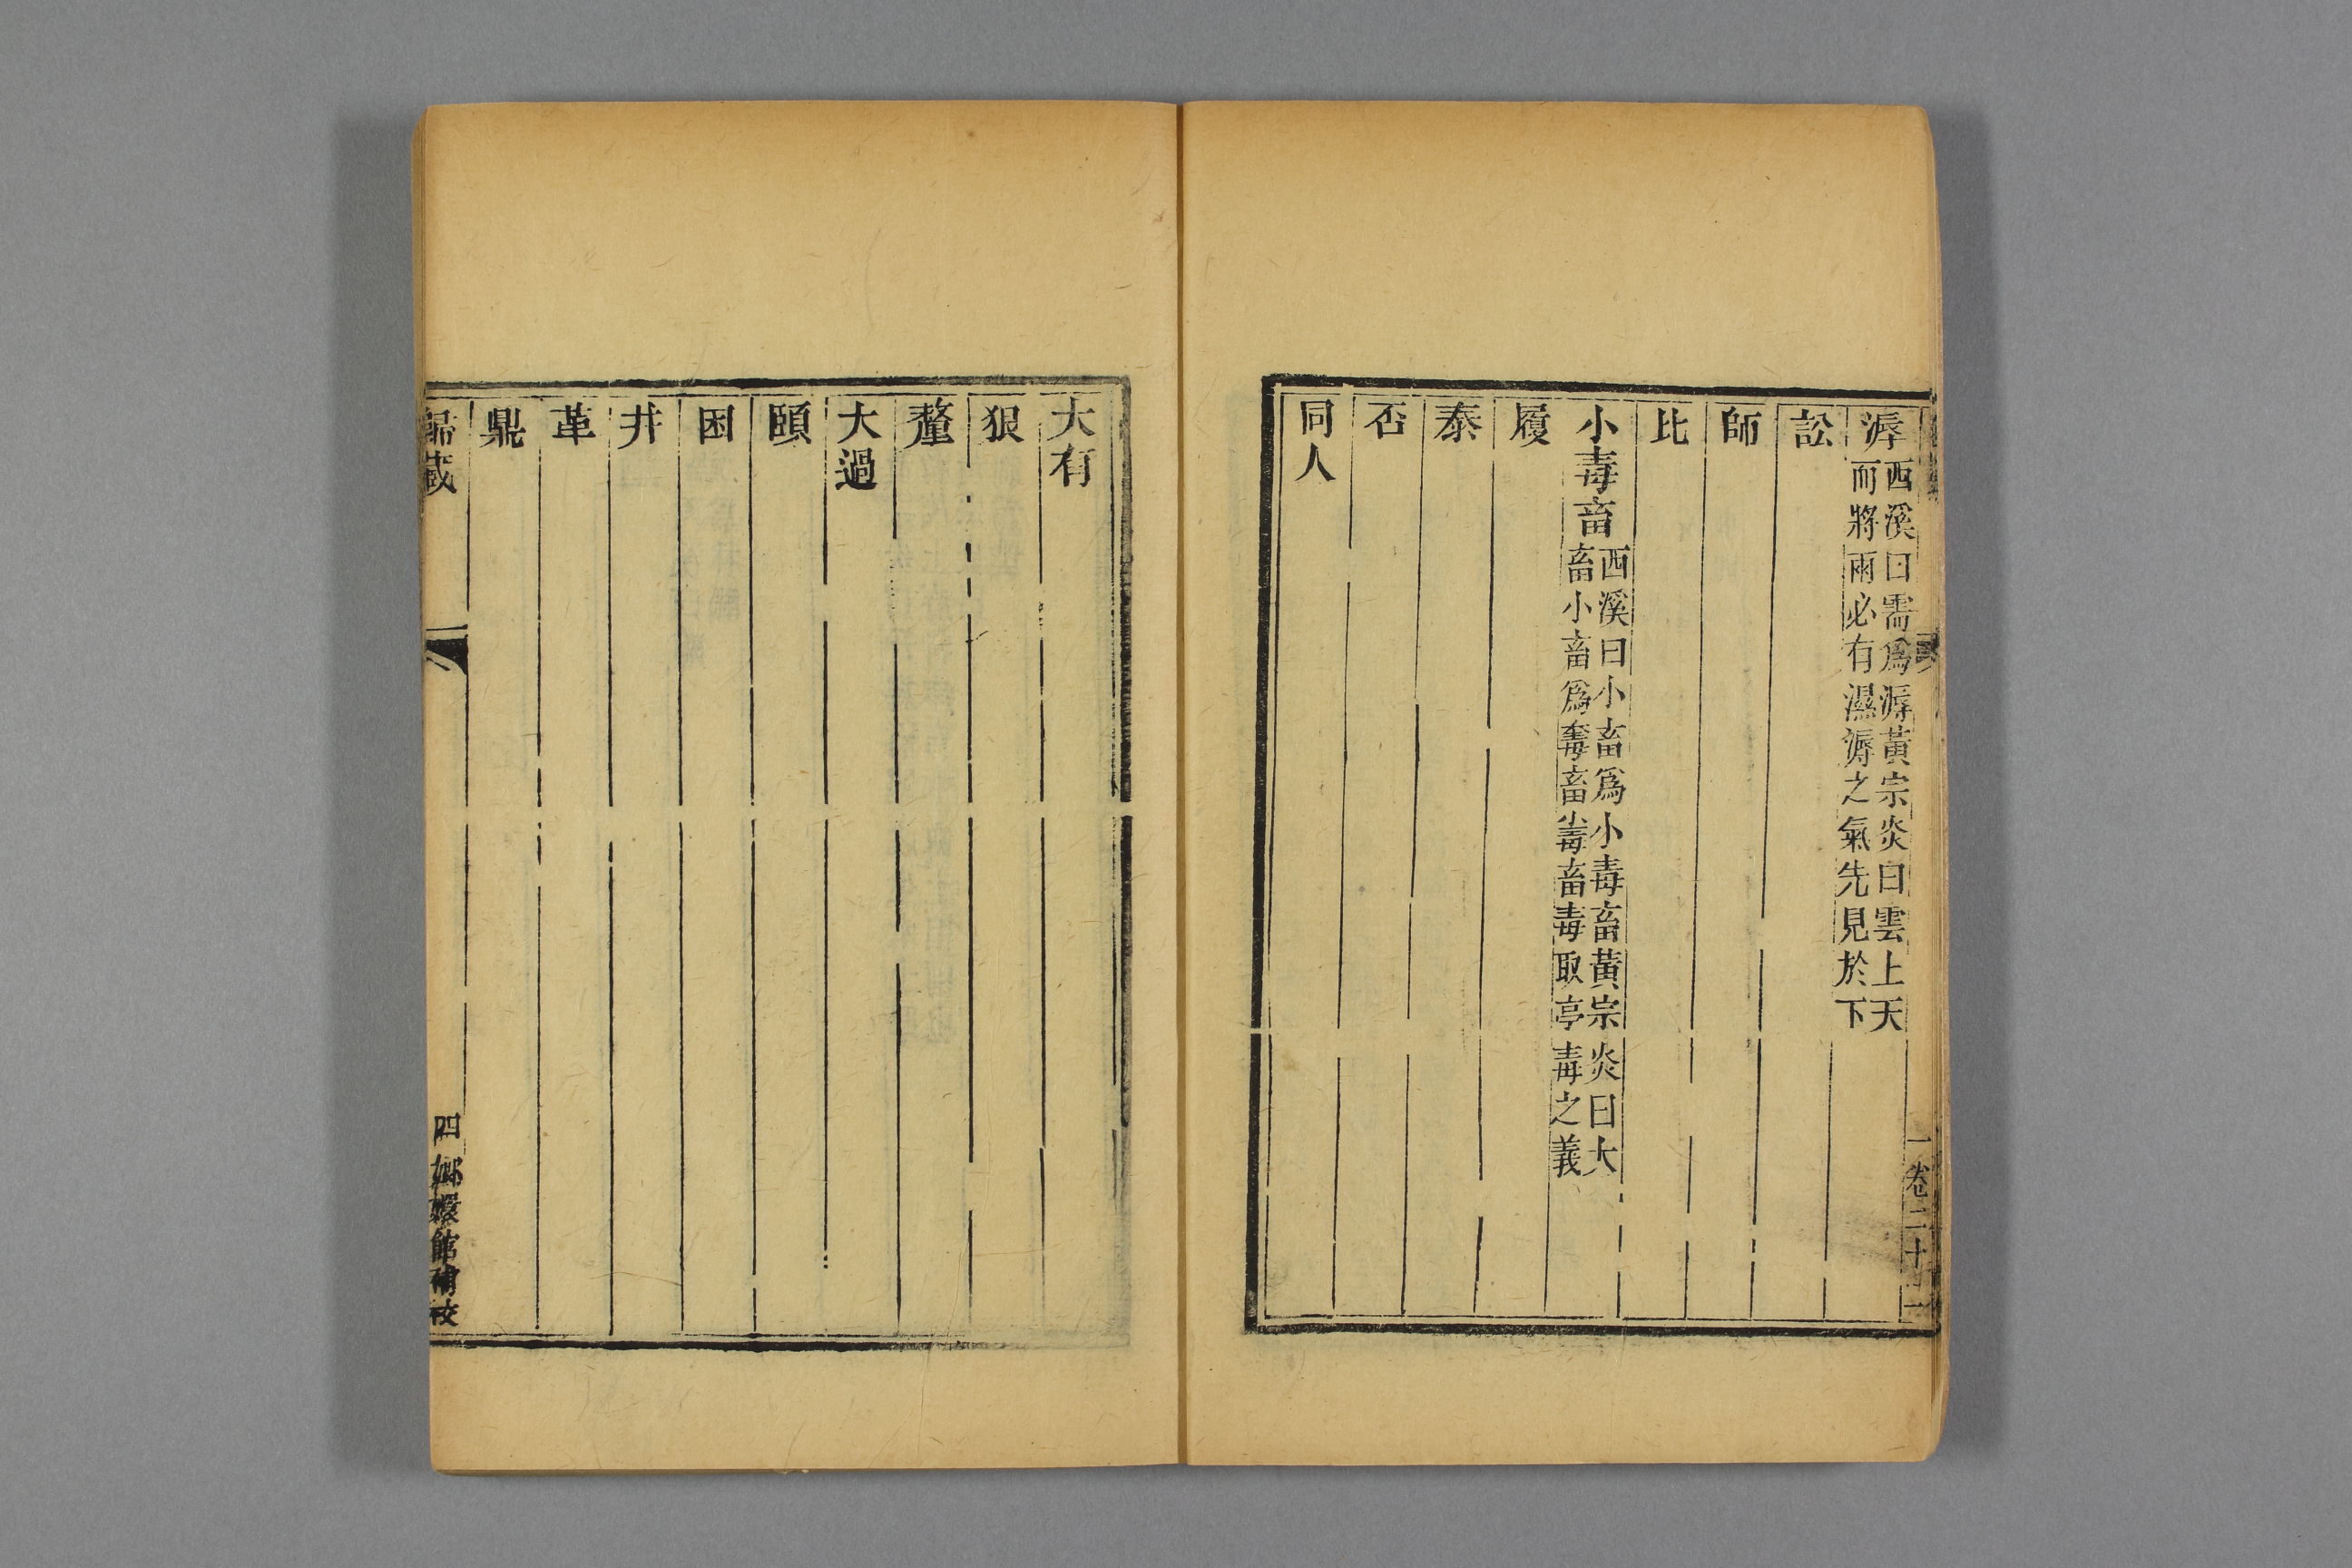 溽
西溪曰需爲溽黃宗炎曰雲上天
而將雨必有濕溽之氣先見於下
訟
師
比
小毒畜
西溪曰小畜爲小毒畜黃宗炎曰大
畜小畜爲大毒畜小毒畜毒取亭毒之義
履
泰
否
同人
卷二十
大有
狠
釐
大過
頤
困
井
革
鼎
歸藏
四
嫏嬛館補校